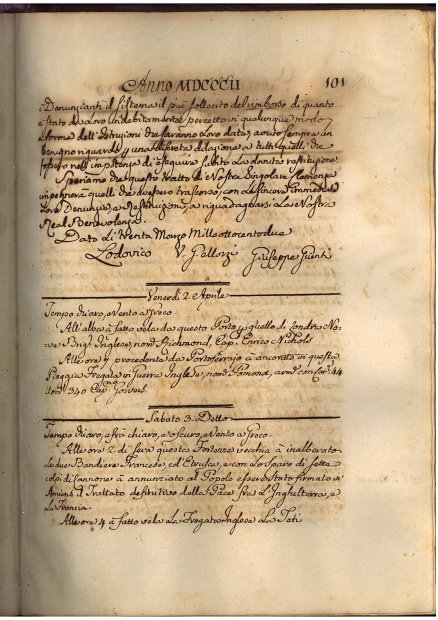 Anno MDCCCII
101
Denunzianti il sistema il più sollecito del rimborso di quanto
è stato da Loro indebitamente percetto in qualunque modo
a forma dell'Istruzioni che saranno Loro date, avuto sempre un
benigno riguardo, y una discreta dilazione a tutti quelli che
fossero nell'impotenza di eseguire subito la dovuta restituzione.
Speriamo che questo tratto di Nostra Singolare Clemenza
impegnerà quelli che avessero trascorso, con la sincera, immediata
Loro Denunzia, e Restituzioni, a riguadagnarsi la Nostra
Real Benevolenza.
Dato li trenta Marzo Milleottocentodue
Lodovico V. Gallozzi Giuseppe Giunti
Venerdì 2 Aprile
Tempo chiaro, e Vento a Greco
All'alba à fatto vela da questo Porto y quello di Londra Na
ve Inglese, nom. Richmond, Cap. Enrico Nichols
Alle ore procedente da Portoferrajo à ancorato in questa
Piaggia Fregata in Guerra Inglese, nom. Pomona, arm. con Can. 44
Uom. 340 Cap. Gowers
Sabato 3. Detto
Tempo chiaro, e frà chiaro, e oscuro, e Vento a Greco
Alle ore 2 di sera questa Fortezza vecchia à inalberato
Le due Bandiere Francese, ed Etrusca, e con lo sparo di sette
colpi di Cannone à annunziato al Popolo essere stato firmato in
Amiens il Trattato definitivo della Pace frà L'Inghilterra, e
La Francia.
Alle ore 4 à fatto vela La Fregata Inglese La Teti